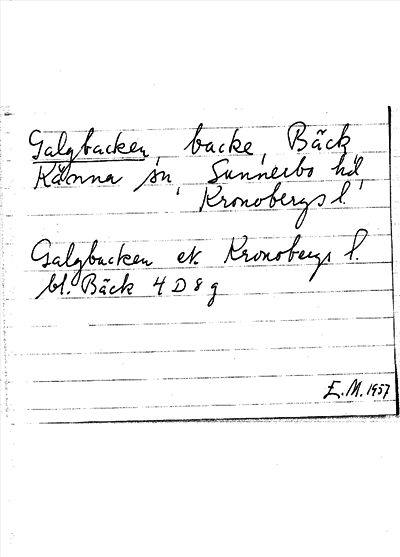 Galgbacken, backe, Bäck,
Känna sn, Sunnerbo hd,
Kronobergs l.
Galgbacken ek. Kronobergs l.
bl. Bäck 4 D 8 g
E. M. 1957